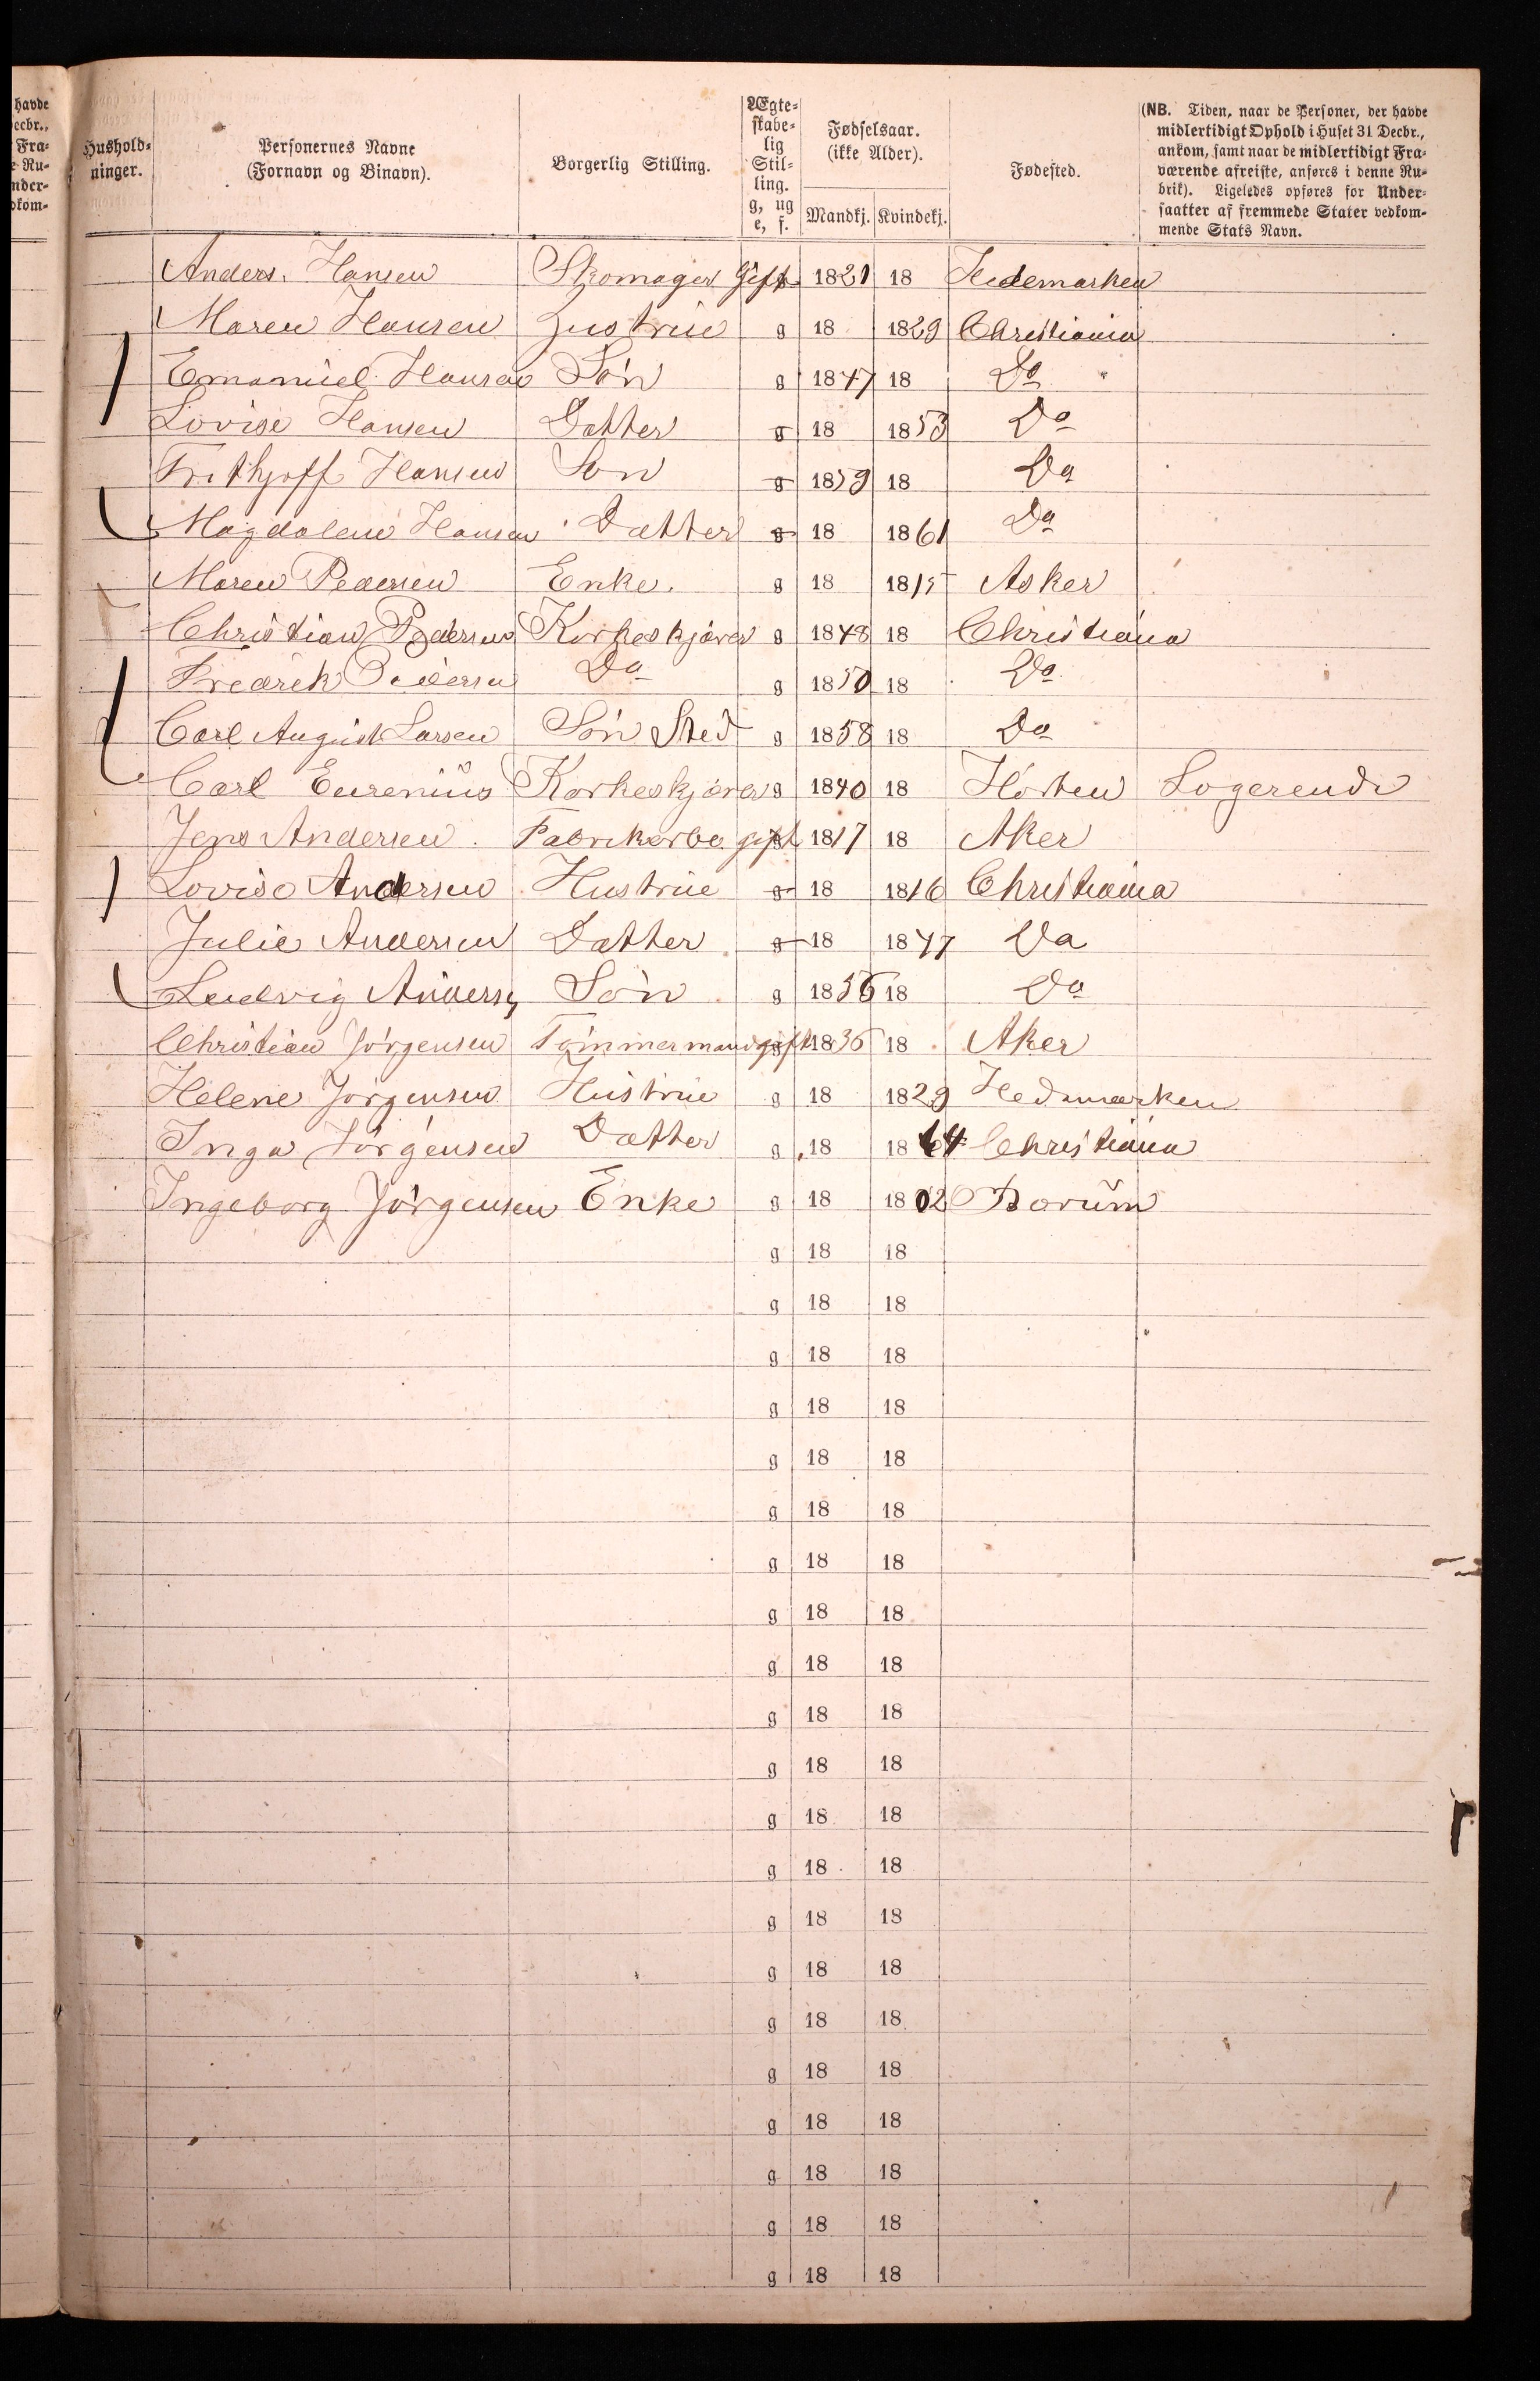 havde
ecbr.,
Fra-
e Ru-
nder-
dkom-
Hushold-
ninger.
Personernes Navne
(Fornavn og Binavn).
Borgerlig Stilling.
Ægte-
skabe-
lig
Stil-
ling.
g, ug
e, f.
Fødselsaar.
(ikke Alder).
Mandkj. Kvindekj.
Fødested.
(NB. Tiden, naar de Personer, der havde
midlertidigt Ophold i Huset 31 Decbr.,
ankom, samt naar de midlertidigt Fra-
værende afreiste, anføres i denne Ru-
brik). Ligeledes opføres for Under-
saatter af fremmede Stater vedkom-
mende Stats Navn.
Anders Hansen Skomager gift 1821 18 Hedemarken
Maren Hansen Hustrue g 18 1829 Christiania
Emanuel Hansen Søn g 1847 18 Do
Lovise Hansen Datter g 18 1853 Do
Frithjoff Hansen Søn g 1859 18 Do
Magdalene Hansen Datter g 18 1861 Do
Maren Pedersen Enke. g 18 18 Asker
Christian Pedersen Korkeskjærer g 1848 18 Christiania
Fredrik Pedersen Do g 1850 18 Do
Carl August Larsen Søn Sted g 1858 18 Do
Carl Eurenius Korkeskjærer g 1840 18 Horten Logerende
Jens Andersen Fabrikarbe gift 1817 18 Aker
Lovise Andersen Hustrue g 18 1816 Christiania
Julie Andersen Datter g 18 1847 Do
Ludvig Anders Søn g 1856 18 Do
Christian Jørgensen Tømmermand gift 1836 18 Aker
Helene Jørgensen Hustrue g 18 1829 Hedemarken
Inga Jørgensen Datter g 18 1864 Christiania
Ingeborg Jørgensen Enke g 18 1802 Barum
g 18 18
g 18 18
g 18 18
g 18 18
g 18 18
g 18 18
g 18 18
g 18 18
g 18 18
g 18 18
g 18 18
g 18 18
g 18 18
g 18 18
g 18 18
g 18 18
g 18 18
g 18 18
g 18 18
g 18 18
g 18 18